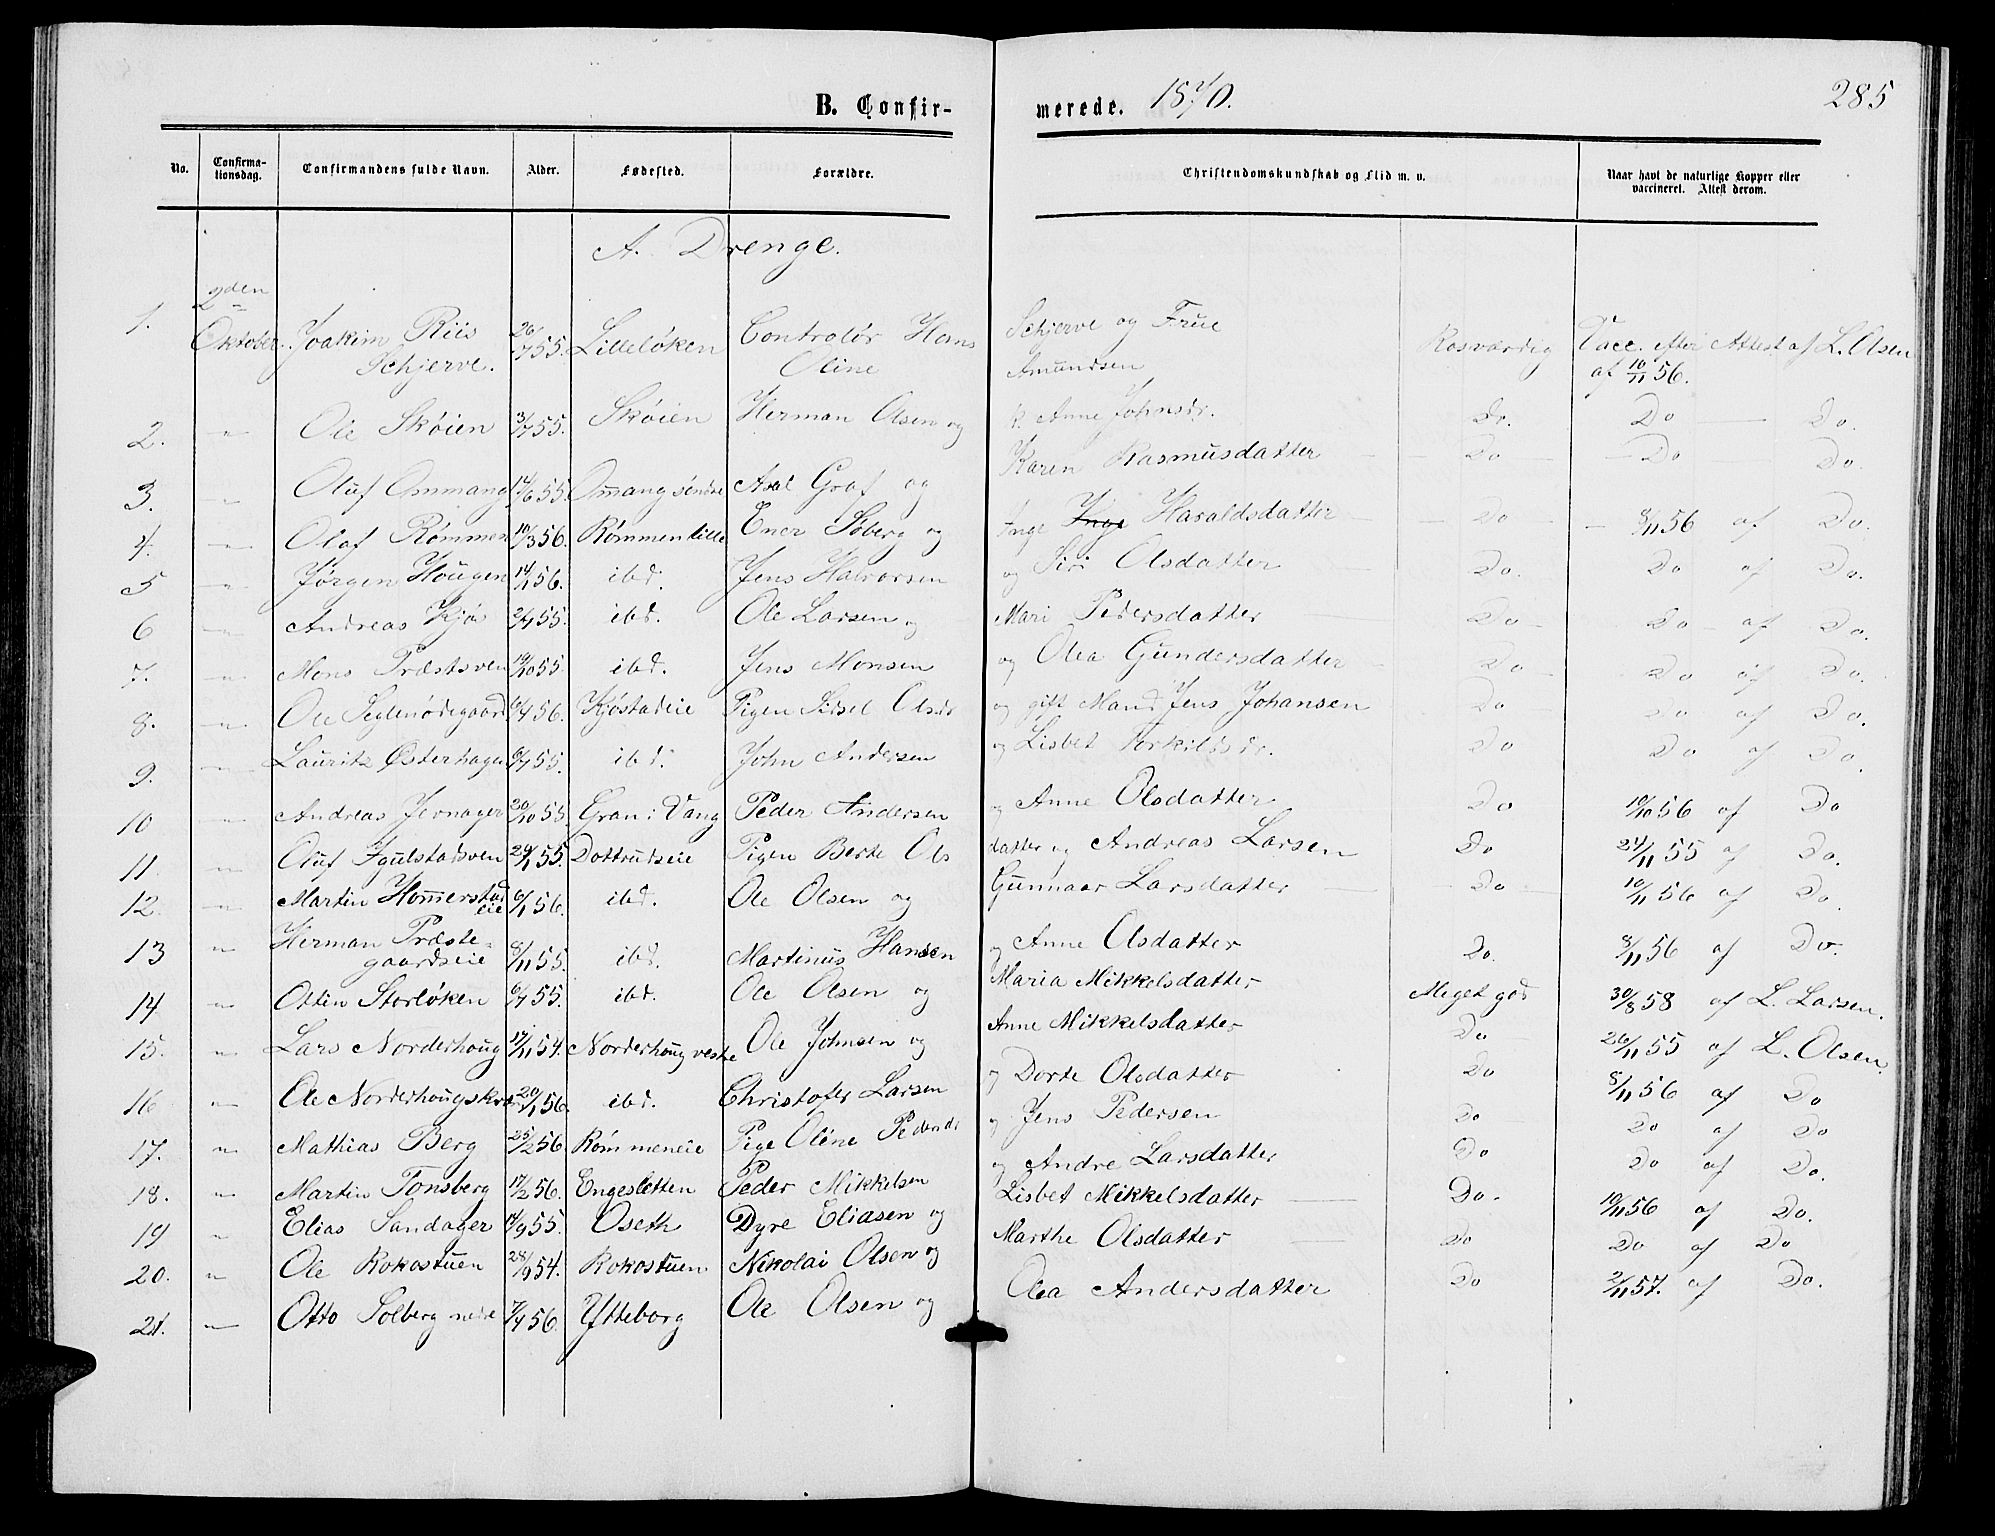 B. Confir-
merede. 1870. 285
No. Confirma-tionsdag. Confirmandens fulde Navn. Alder. Fødested. Forældre. Christendomskundskab og Flid m. v. Naar havt de naturlige Kopper eller vaccineret. Attest derom.
A. Drenge.
2den
1. Oktober. Joakim Riis 26/7 55. Lilleløken Controlør Hans Schjerve og Frue Rosværdig Vacc. efter Attest af L. Olsen
Schjerve. Oline Amundsen af 10/11 56.
2. " Ole Skøien 3/7 55. Skøien Herman Olsen og k. Anne Johnsdr. Do. Do — Do.
3. " Oluf Ommang 14/6 55 Ommang søndre Axel Graf og Karen Rasmusdatter Do — Do Do.
4. " Olaf Rømmen 10/3 56. Rømmen lille Ener Søberg og Inge Haraldsdatter Do — 8/11 56 af Do.
5 " Jørgen Hougen 14/1 56. ibd. Jens Halvorsen og Siri Olsdatter Do. Do af Do.
6 " Andreas Kjøs 2/4 55. ibd. Ole Larsen og Mari Pedersdatter Do Do af Do.
7. " Mons Præstsven 19/10 55. ibd. Jens Monsen og Olea Gundersdatter Do Do af Do.
8. " Ole Seglenødegaard 6/4 56. Kjøstadeie Pigen Sidsel Olsdr og gift Mand Jens Johansen Do Do af Do.
9. " Lauritz Østerhagen 6/7 55. ibd. John Andersen og Lisbet Torkildsdr. Do Do af Do.
10 " Andreas Jernager 20/10 55. Gran i Vang Peder Andersen og Anne Olsdatter Do 10/10 56 af Do
11. " Oluf Igulstadsven 29/1 55. Dottrudseie Pigen Berte Ols datter og Andreas Larsen Do 24/11 55 af Do.
12. " Martin Hommerstad 6/1 56. ibd. Ole Olsen og Gunnaar Larsdatter Do 10/11 56 af Do.
eie
13 " Herman Præste- 8/11 55. ibd. Martinus Hansen og Anne Olsdatter Do. 8/11 56 af Do.
gaardseie
14. " Ottin Storløken 6/7 55. ibd. Ole Olsen og Maria Mikkelsdatter Meget god 30/8 58 af L. Larsen.
15. " Lars Norderhoug 17/11 54. Norderhoug vestre Ole Johnsen og Anne Mikkelsdatter Do 26/11 55 af L. Olsen.
16 " Ole Norderhougskv 20/1 56. ibd. Christofer Larsen og Dorte Olsdatter Do 8/11 56 af Do
17. " Mathias Berg 25/2 56 Rømmeneie Pige Oline Pedersdr og Jens Pedersen Do Do af Do
18. " Martin Tonsberg 17/2 56. Engesletten Peder Mikkelsen og Andre Larsdatter Do Do af Do.
19 " Elias Sandager 14/9 55. Oseth Dyre Eliasen og Lisbet Mikkelsdatter Do. 10/11 56 af Do.
20. " Ole Rokostuen 28/9 54. Rokostuen Nikolai Olsen og Marthe Olsdatter Do Do af Do
21. " Otto Solberg nedre 7/4 56. Ytteborg Ole Olsen og Olea Andersdatter Do 2/11 57. af Do.